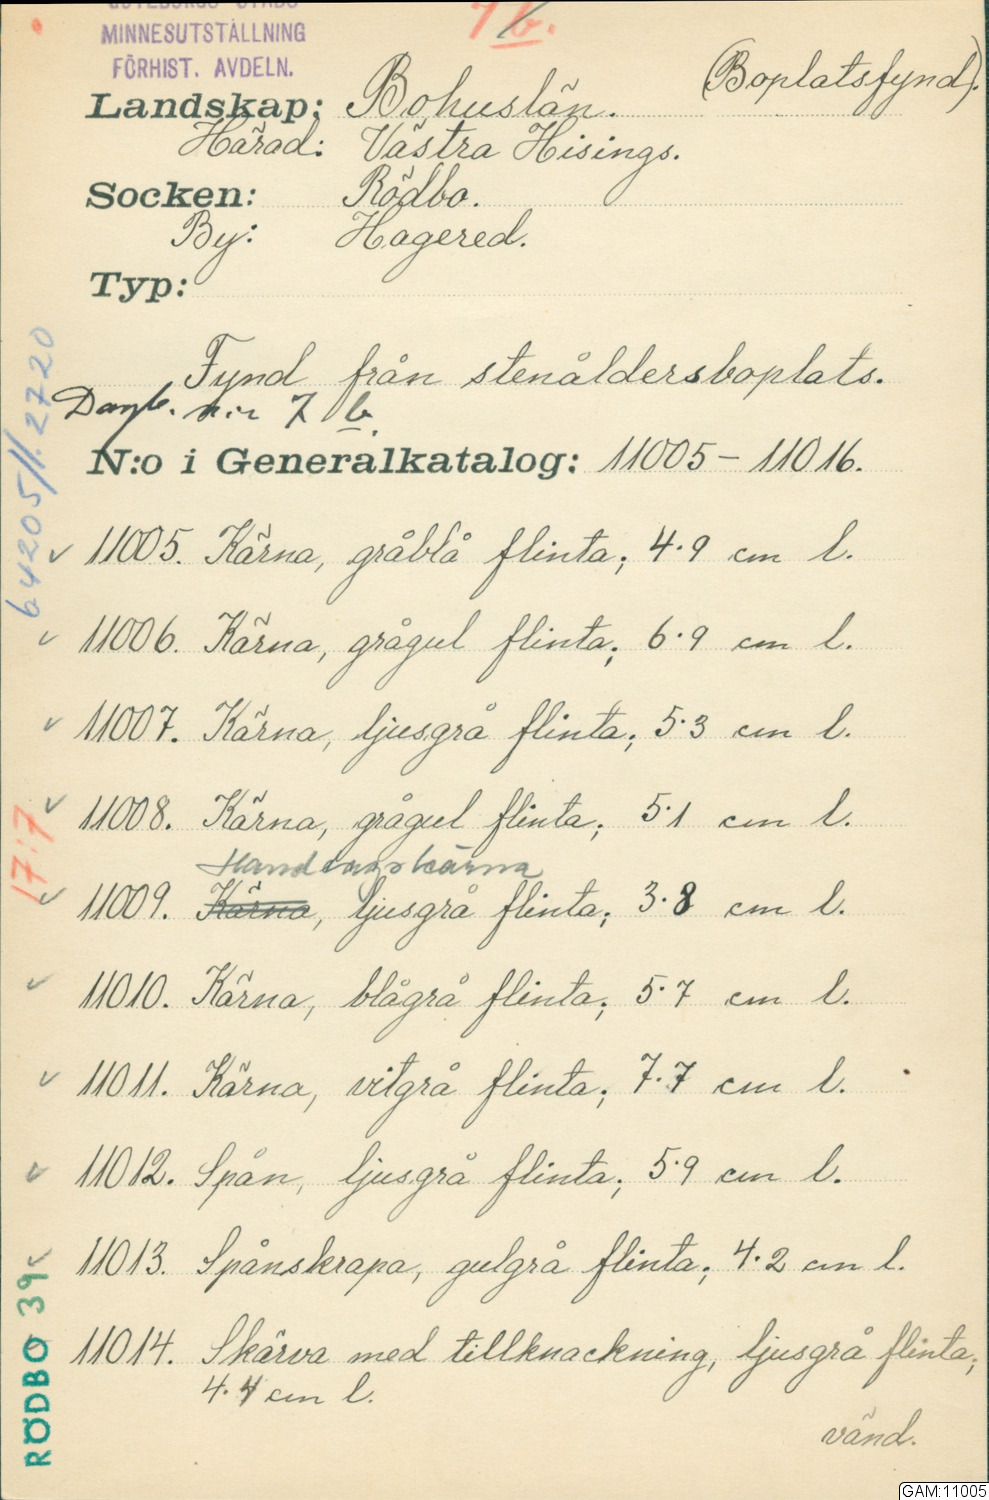 GÖTEBORGS STADS
MINNESUTSTÄLLNING
FÖRHIST. AVDELN.
7 b.
(Boplatsfynd).
Landskap: Bohuslän.
Härad: Västra Hisings.
Socken: Rödbo.
By: Hagered.
Typ:
Fynd från stenåldersboplats.
Dagb. n:r 7 b.
N:o i Generalkatalog: 11005-11016.
11005. Kärna, gråblå flinta; 4.9 cm l.
11006. Kärna, grågul flinta; 6.9 cm l.
11007. Kärna, ljusgrå flinta; 5.3 cm l.
11008. Kärna, grågul flinta; 5.1 cm l.
Handtagskärna
11009. Kärna, ljusgrå flinta; 3.8 cm l.
11010. Kärna, blågrå flinta; 5.7 cm l.
11011. Kärna, vitgrå flinta; 7.7 cm l.
11012. Spån, ljusgrå flinta; 5.9 cm l.
11013. Spånskrapa, gulgrå flinta; 4.2 cm l.
11014. Skärva med tillknackning, ljusgrå flinta;
4.4 cm l.
vänd.
64205/1.2720
17:7
RÖDBO 39
GAM:11005